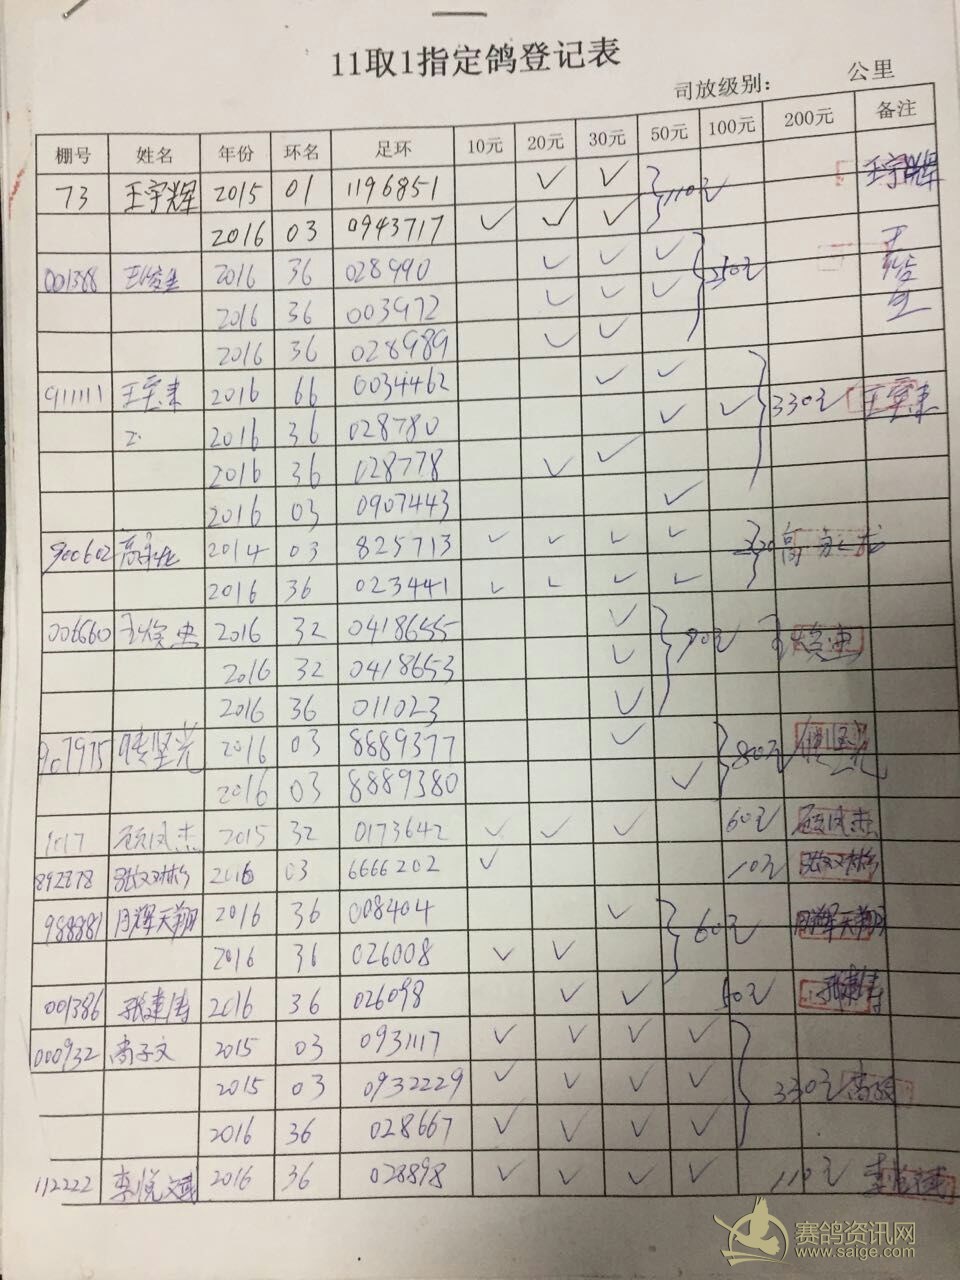 11取1指定鸽登记表
司放级别: 公里
棚号 姓名 年份 环名 足环 10元 20元 30元 50元 100元 200元 备注
73 王宇辉 2015 01 1196851 ✓ ✓ 110元 王宇辉
2016 03 0943717 ✓ ✓ ✓
001388 2016 36 028990 ✓ ✓ ✓ 250元
2016 36 003972 ✓ ✓ ✓
2016 36 028989 ✓ ✓
911111 2016 66 0034462 ✓ ✓ 330元
2016 36 028780 ✓ ✓
2016 36 028778 ✓ ✓
2016 03 0907443 ✓
900602 2014 03 825713 ✓ ✓ ✓ ✓
2016 36 023441 ✓ ✓ ✓ ✓
006660 2016 32 0418655 ✓ 90元
2016 32 0418653 ✓
2016 36 011023 ✓
907975 2016 03 8889377 ✓ 80元
2016 03 8889380 ✓
1017 顾凤杰 2015 32 0173642 ✓ ✓ ✓ 60元 顾凤杰
892878 2016 03 6666202 ✓ 10元
988881 月辉天翔 2016 36 008404 ✓ 60元 月辉天翔
2016 36 026008 ✓ ✓
001386 张建涛 2016 36 026098 ✓ ✓ 50元 张建涛
000932 高子文 2015 03 0931117 ✓ ✓ ✓ ✓ 330元
2015 03 0932229 ✓ ✓ ✓ ✓
2016 36 028667 ✓ ✓ ✓ ✓
112222 李悦斌 2016 36 028898 ✓ ✓ ✓ ✓ 110元
赛鸽资讯网
www.saige.com